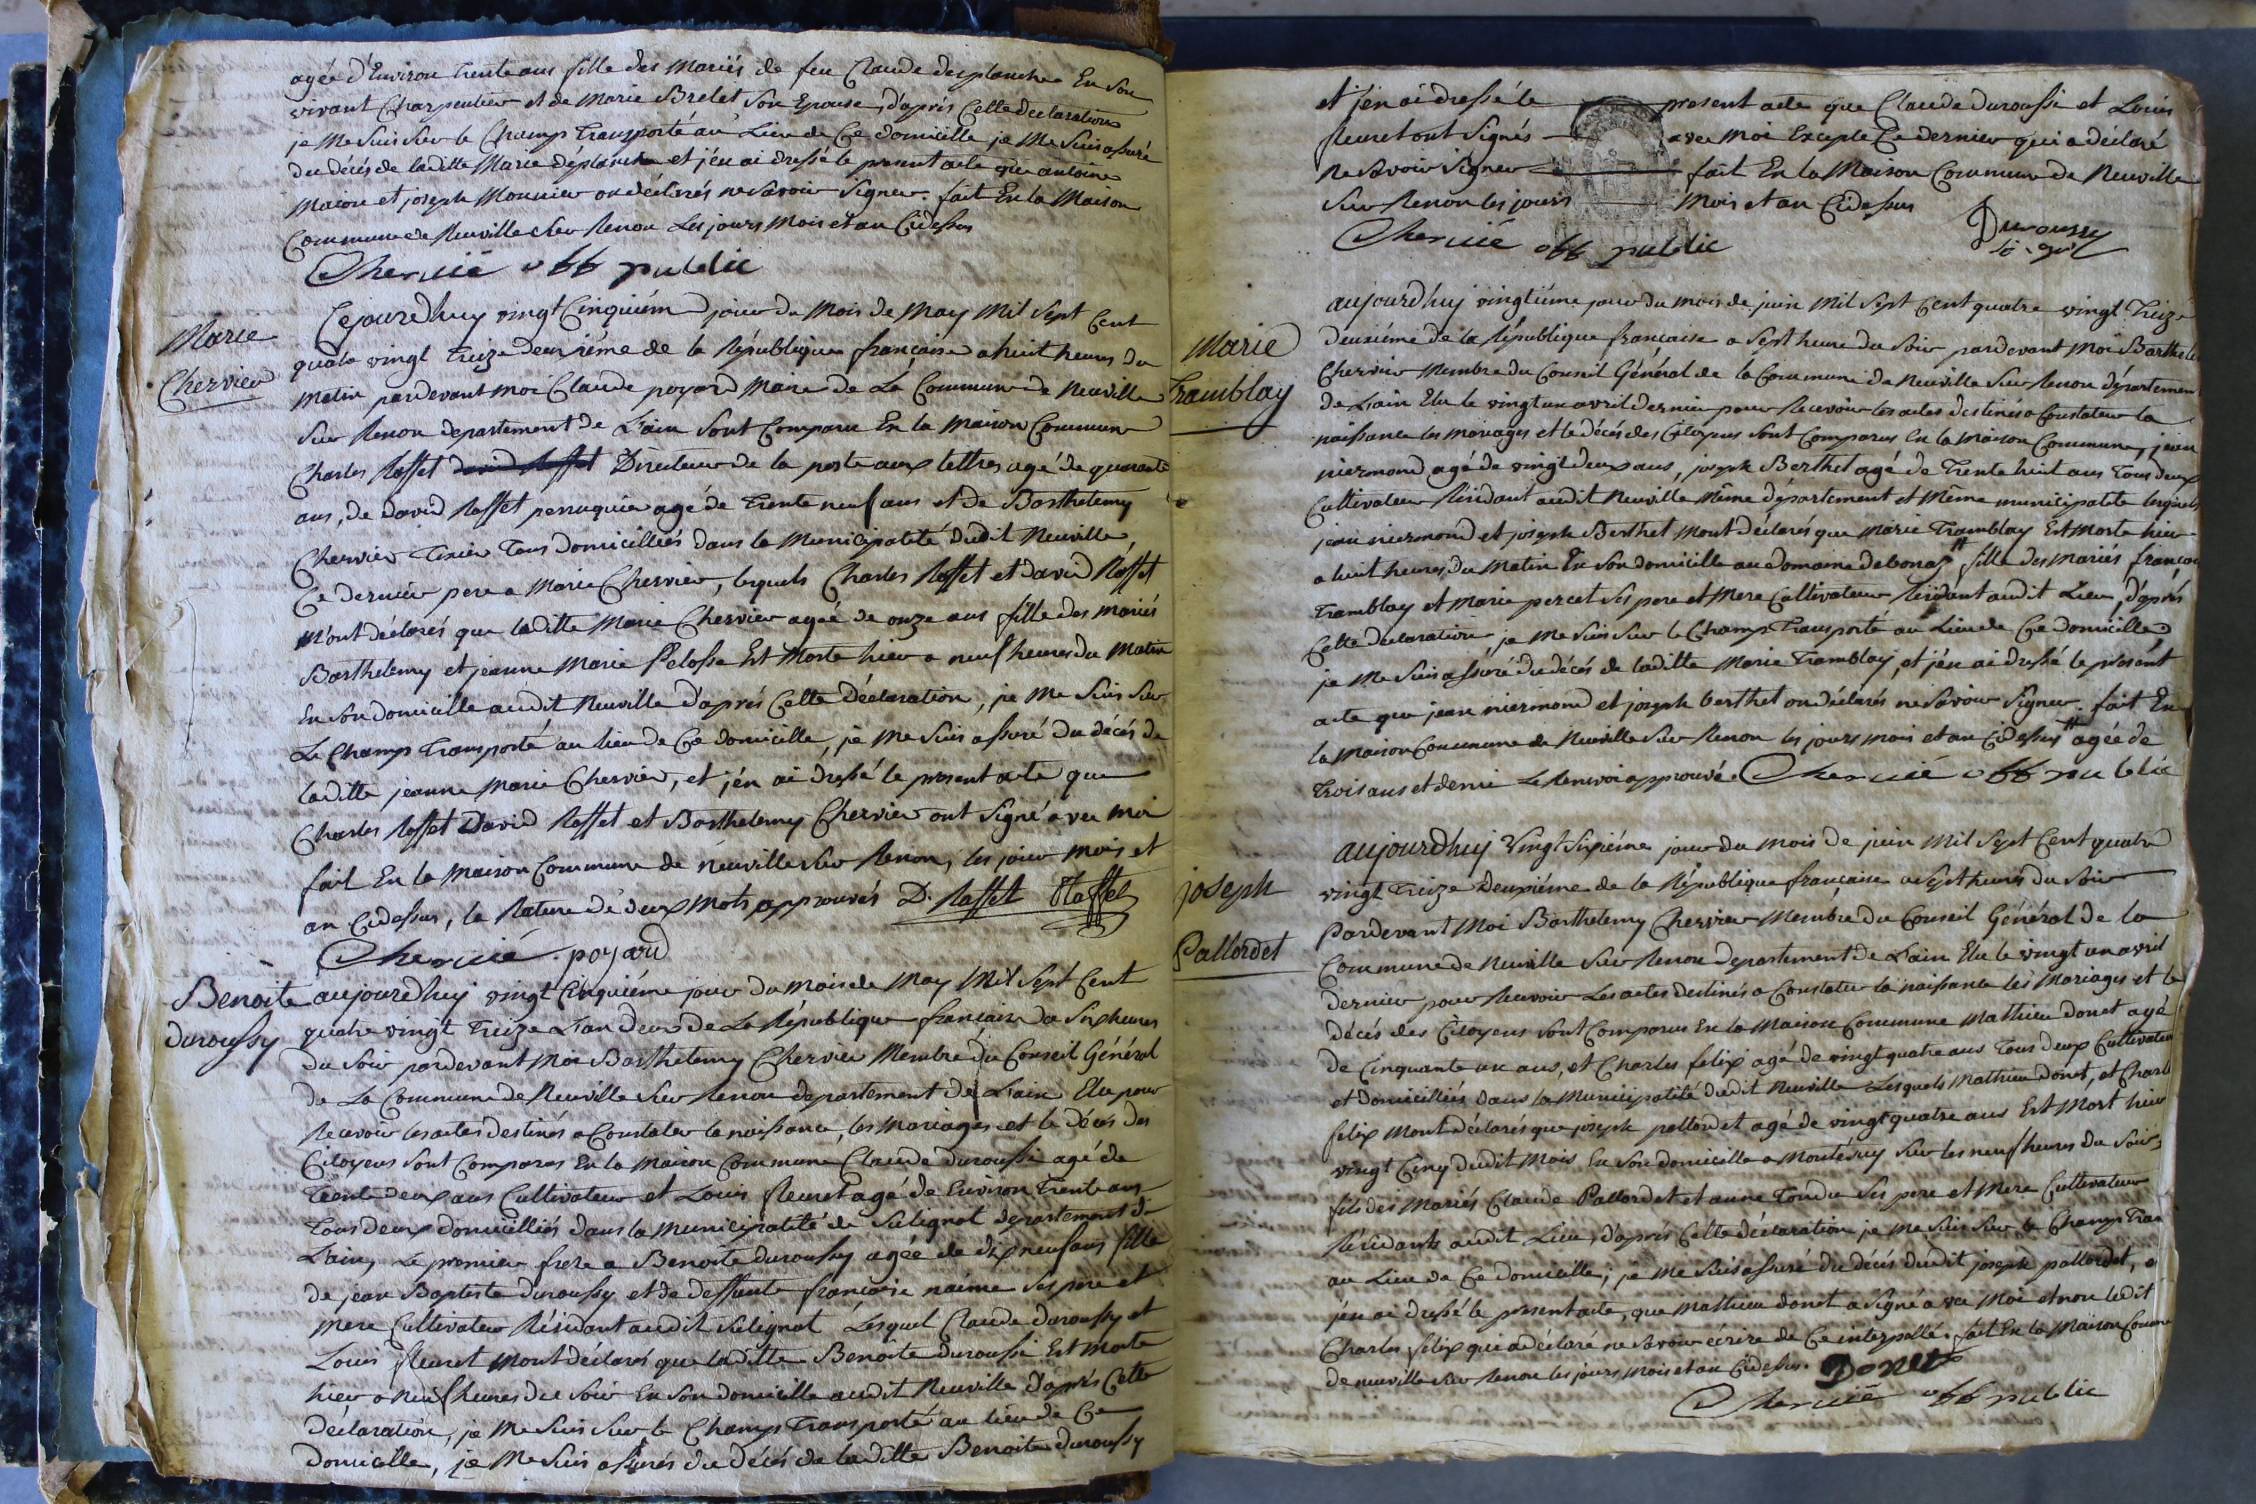 agée d'Environ trente ans fille des Mariés de feu Claude desplanche En son
vivant Charpentier et de Marie Brelet son Epouse, d'après Cette declaration
je Me suis sur le Champ Transporté au Lieu de Ce domicille je Me suis assuré
du décés de laditte Marie déplanche et j'en ai dressé le present acte que antoine
Macon et joseph Monnier on déclarés ne Savoir Signer. fait En la Maison
Commune de Neuville sur Renon Les jours Mois et an Cidessus
Chervié off public
Marie
Chervier
Cejourdhuy vingt Cinquiém jour du Mois de May Mil Sept Cent
quatre vingt Treize deuxiéme de la République française a huit heures du
Matin pardevant moi Claude poyard Maire de La Commune de Neuville
Sur Renon departement de L'ain sont Comparu En la Maison Commune
Charles Raffet david Raffet Directeur de la poste aux lettres agé de quarante
ans, de david Raffet perruquier agé de Trente neuf ans et de Barthelemy
Chervier Tixier Tous domicilliés dans la Municipalité dudit Neuville,
Ce dernier pere a Marie Chervier, lesquels Charles Raffet et david Raffet
M'ont déclarés que laditte Marie Chervier agée de onze ans fille des mariés
Barthelemy et jeanne Marie Pelosse Est Morte hier a neuf heures du Matin
En Son domicille audit Neuville d'aprés Cette Déclaration, je Me Suis Sur
Le Champ Transporté au lieu de Ce domicille, je Me Suis assuré du décés de
laditte jeanne Marie Chervier, et j'én ai dressé le present acte que
Charles Raffet David Raffet et Barthelemy Chervier ont Signé avec moi
fait En la Maison Commune de neuville Sur Renon, les jour mois et
an Cidessus, la Rature de deux Mots approuvés D. Raffet Raffet
Chervié poyard
Benoite
duroussy
aujourdhuy vingt Cinquiéme jour du mois de May Mil Sept Cent
quatre vingt Treize L'an deux de La République francaise a Six heures
du Soir pardevant Moi Barthelemy Chervier Membre du Conseil Général
de La Commune de Neuville Sur Renon departement de L'ain Elu pour
Recevoir les actes destinés a Constater la naissance, les Mariages et le décés des
Citoyens sont Comparus En la Maison Commune Claude duroussi agé de
Trente deux ans Cultivateur et Louis fleuret agé de Environ Trente ans
Tous deux domicilliés dans la Municipalité de Sulignat departement de
L'ain, Le premier frere a Benoite duroussy agée de dix neuf ans fille
de jean Baptiste duroussy et de deffunte francoise naime Ses pere et
Mere Cultivateur Résidant audit Sulignat Lesquel Claude duroussy et
Louis fleuret Mont déclarés que laditte Benoite duroussi Est Morte
hier a Neuf heures du Soir En Son domicille audit Neuville d'aprés Cette
Déclaration, je Me Suis Sur le Champ Transporté au lieu de Ce
domicille, je Me Suis assurés du décés de laditte Benoite duroussy
et j'en ai dressé le present acte que Claude duroussi et Louis
fleuret ont Signés avec Moi Excepté Ce dernier qui a déclaré
ne Savoir Signer fait En la Maison Commune de Neuville
Sur Renon les jours Mois et an Cidessus
Duroussy
Chervié off public
Marie
Tramblay
aujourdhuj vingtiéme jour du mois de juin Mil Sept Cent quatre vingt Treize
deuxiéme de la République francaise a Sept heure du Soir pardevant Moi Barthele
Chervier Membre du Conseil Général de la Commune de Neuville Sur Renon département
de L'ain Elu le vingt un avril dernier pour Recevoir les actes destinés a Constater la
naissance les mariages et le décés des Citoyens sont Comparus En la Maison Commune, jean
niermond agé de vingt deux ans, joseph Berthet agé de Trente huit ans Tous deux
Cultivateur Résidant audit Neuville Même département et Même municipalité lesquels
jean niermond et joseph Berthet Mont Déclarés que Marie Tramblay Est Morte hier
a huit heures du Matin En Son domicille au domaine de bonaz # fille des Mariés françois
Tramblay et Marie percet Ses pere et Mere Cultivateur Résidant audit Lieu, d'aprés
Cette déclaration, je Me Suis Sur le Champ Transporté au Lieu de Ce domicille
je Me Suis assuré du décés de laditte Marie Tramblay, et j'én ai dressé le présent
acte que jean niermond et joseph berthet on déclarés ne Savoir Signer. fait En
la Maison Commune de Neuville Sur Renon les jours mois et an Cidessus # agée de
Trois ans et demi Le Renvoi approuvé. Chervié off public
joseph
Pallordet
aujourdhuj Vingt Sixiéme jour du mois de juin Mil Sept Cent quatre
vingt Treize Deuxiéme de la République francaise a Sept heures du Soir
Pardevant Moi Barthelemy Chervier Membre du Conseil Général de la
Commune de Neuville Sur Renon departement de L'ain Elu le vingt un avril
dernier pour Recevoir Les actes destinés a Constater la naissance les Mariages et le
décés des Citoyens sont Comparus En la Maison Commune Mathieu donet agé
de Cinquante un ans, et Charles felix agé de vingt quatre ans Tous deux Cultivateur
et domicilliés dans la Municipalité dudit Neuville Lesquels Mathieu donet, et Charl
felix Mont déclarés que joseph pallordet agé de vingt quatre ans Est Mort hier
vingt Cinq dudit Mois En Son domicille a Montessuy Sur les neuf heures du Soir,
fils des Mariés Claude Pallordet et anne Tondu Ses pere et Mere Cultivateur
Résidants audit Lieu, d'aprés Cette déclaration je Me Suis Sur le Champ Tran
au Lieu de Ce domicille; je Me Suis assuré du décés dudit joseph pallordet, e
jén ai dressé le present acte, que Mathieu donet a Signé avec Moi et non ledit
Charles felix qui a déclaré ne Savoir écrire de Ce interpellé. fait En la Maison Comm
de neuville Sur Renon les jours Mois et an Cidessus. Donet
Chervié off public